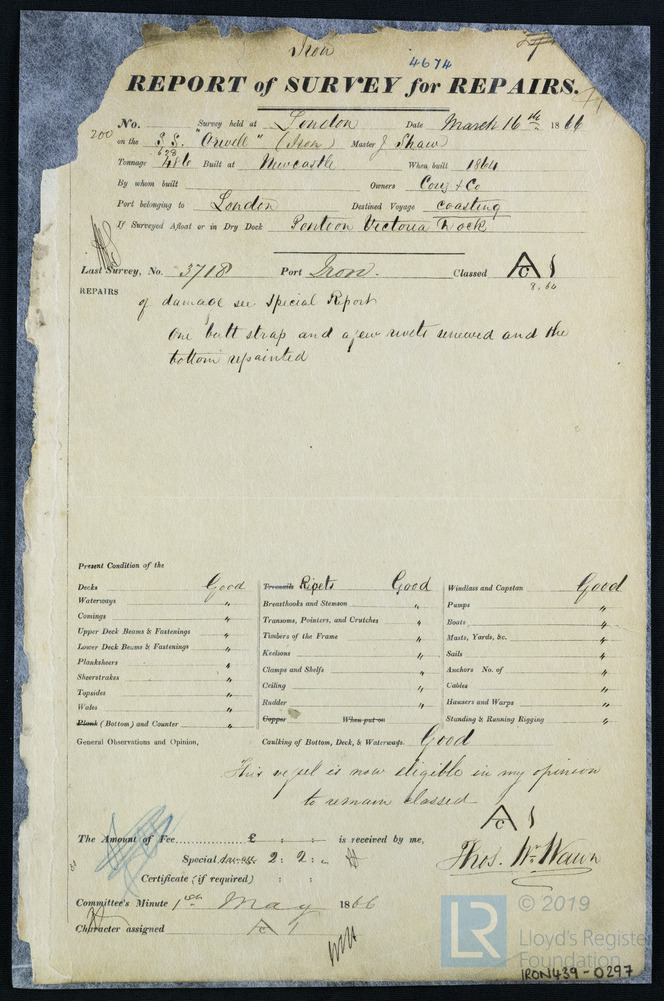 Iron
4674
REPORT of SURVEY for REPAIRS.
No. Survey held at London Date March 16th 1866
200 on the S.S. "Orwell" (Iron) Master J Shaw
628
Tonnage 486 Built at Newcastle When built 1864
By whom built Owners Cory & Co
Port belonging to London Destined Voyage coasting
If Surveyed Afloat or in Dry Dock Pontoon Victoria Dock
Last Survey, No. 3718 Port Iron. Classed A 1
C
8.64
REPAIRS
of damage see Special Report
One butt strap and a few rivets renewed and the
bottom repainted
Present Condition of the
Decks Good Treenails Rivets Good Windlass and Capstan Good
Waterways " Breasthooks and Stemson " Pumps "
Comings " Transoms, Pointers, and Crutches " Boats "
Upper Deck Beams & Fastenings " Timbers of the Frame " Masts, Yards, &c. "
Lower Deck Beams & Fastenings " Keelsons " Sails "
Planksheers " Clamps and Shelfs " Anchors No. of "
Sheerstrakes " Ceiling " Cables "
Topsides " Rudder " Hawsers and Warps "
Wales " Copper When put on Standing & Running Rigging "
Plank (Bottom) and Counter "
General Observations and Opinion, Caulking of Bottom, Deck, & Waterways. Good
This vessel is now eligible in my opinion
to remain classed
A 1
C
The Amount of Fee £ : : is received by me,
Special 2 : 2 : "
Certificate (if required) : :
Thos. Wm Wawn
Committee's Minute 1st May 1866
Character assigned A 1
C
LR
© 2019
Lloyd's Register
Foundation
IRON439-0297